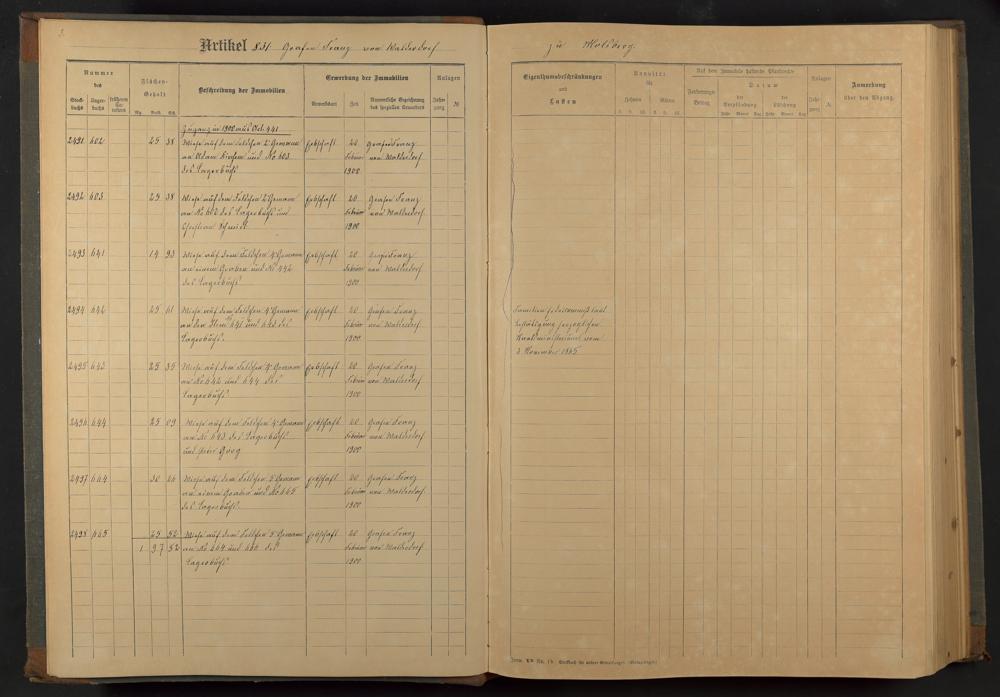 Artikel 831 Grafen Franz von Walderdorf
zu Molsberg.
Nummer
des
Stock-
buchs
Lager-
buchs
früheren
Flächen-
Gehalt
Mg. Rth. Sch.
Beschreibung der Immobilien
Erwerbung der Immobilien
Erwerbsart
Zeit
Namentliche Bezeichnung
des speziellen Erwerbers
Anlagen
Jahr-
gang
№
Eigenthumsbeschränkungen
und
Lasten
Annuität
für
Zehnten
Gülten
Auf dem Immobile haftende Pfandrechte
Forderungs-
Betrag
Datum
der
Verpfändung
der
Löschung
Anlagen
Jahr-
gang
№
Anmerkung
über den Abgang.
Zugang in 1902 aus Art. 441
2491 602 25 38 Wiese auf dem 2r Gewann Erbschaft 20 Grafen Franz
an Adam und No 603 Februar von Walderdorf
des Lagerbuchs 1900
2492 603 25 38 Wiese auf dem 2r Gewann Erbschaft 20 Grafen Franz
an No 602 des Lagerbuchs und Februar von Walderdorf
Christian Schmidt 1900
2493 641 14 93 Wiese auf dem 4r Gewann Erbschaft 20 Grafen Franz
an einem Graben und No 442 Februar von Walderdorf
des Lagerbuchs 1900
2494 642 25 61 Wiese auf dem 4r Gewann Erbschaft 20 Grafen Franz
an den 641 und 643 des Februar von Walderdorf
Lagerbuchs. 1900
2495 643 25 35 Wiese auf dem 4r Gewann Erbschaft 20 Grafen Franz
an No 642 und 644 des Februar von Walderdorf
Lagerbuchs 1900
2496 644 25 09 Wiese auf dem 4r Gewann Erbschaft 20 Grafen Franz
an No 643 des Lagerbuchs Februar von Walderdorf
und 1900
2497 664 30 26 Wiese auf dem 5r Gewann Erbschaft 20 Grafen Franz
an einem Graben und No 665 Februar von Walderdorf
des Lagerbuchs. 1900
2498 665 25 52 Wiese auf dem 5r Gewann Erbschaft 20 Grafen Franz
1 97 52 an No 664 und 666 des Februar von Walderdorf
Lagerbuchs 1900
Familienfideicommiß laut
Bestätigung herzoglichen
Staatsministeriums vom
3 November 1865